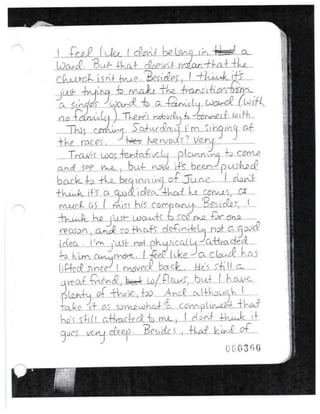 I feel like I don't belong in a
ward. But that doesn't mean that the
church isn't true. Besides, I think it's
just trying to make the transition from
a singles ward to a family ward (with
no family). There's nobody to connect with.
This coming Saturday I'm singing at
the races. Nervous? Very.
Travis was tentatively planning to come
and see me, but now it's been pushed
back to the beginning of June. I don't
think it's a good idea that he comes, as
much as I miss his company. Besides, I
think he just wants to see me for one
reason, and so that's definitely not a good
idea. I'm just not physically attracted
to him anymore. I feel like a cloud has
lifted since I moved back. He's still a
great friend, w/ flaws, but I have
plenty of those, too. And although I
take it as somewhat a compliment that
he's still attracted to me, I don't think it
goes very deep. Besides, that kind of
000360